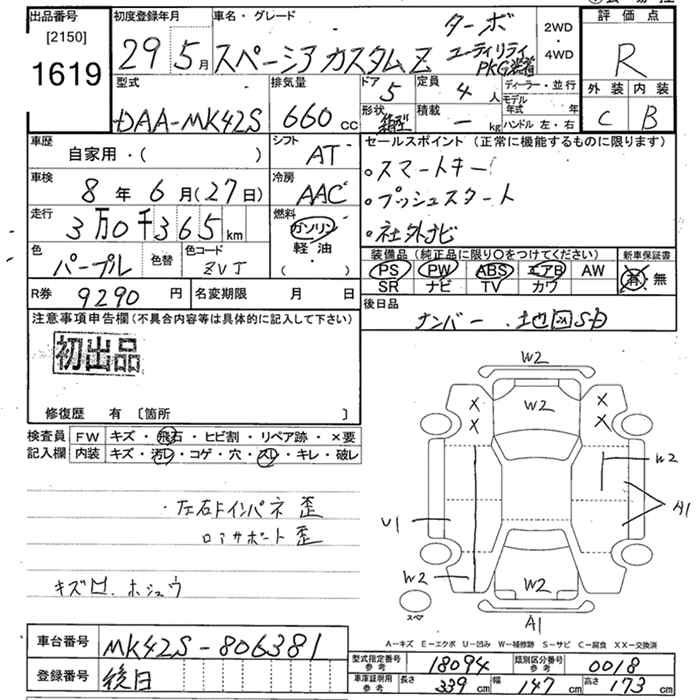 出品番号 初度登録年月 車名・グレード ターボ 2WD・4WD 評価点
[2150]
1619 29 5月 スペーシア カスタムZ ユーティリティPKG装着車 R
型式 排気量 ドア 5 定員 4人 ディーラー・並行 外装 内装
DAA-MK42S 660cc 形状 箱型 積載 ー kg モデル年式 年 ハンドル 左・右 C B
車歴 自家用・( ) シフト AT セールスポイント(正常に機能するものに限ります)
車検 8年 6月(27日) 冷房 AAC
・スマートキー
・プッシュスタート
・社外ナビ
走行 3万0千365km 燃料 ガソリン 軽・油 ( ・ )
色 パープル 色替 色コード ZVJ
装備品(純正品に限り○をつけてください) 新車保証書
PS PW ABS エアB AW 有・無
SR ナビ TV カワ
R券 9290円 名変期限 月 日
後日品 ナンバー、地図SD
注意事項申告欄(不具合内容等は具体的に記入して下さい)
初出品
修復歴 有 〔箇所 〕
検査員記入欄 FW キズ・飛石・ヒビ割・リペア跡・×要
内装 キズ・汚レ・コゲ・穴・スレ・キレ・破レ
・左右ドインパネ歪
ロアサポート歪
キズ凹、ホシュウ
W2
W2
× ×
× ×
W2
A1
U1
W2
W2
スペア
A1
A−キズ E−エクボ U−凹み W−補修跡 S−サビ C−腐食 XX−交換済
車台番号 MK42S-806381
登録番号 後日
型式指定番号 参考 18094 類別区分番号 参考 0018
車庫証明用 参考 長さ 339cm 幅 147cm 高さ 173cm